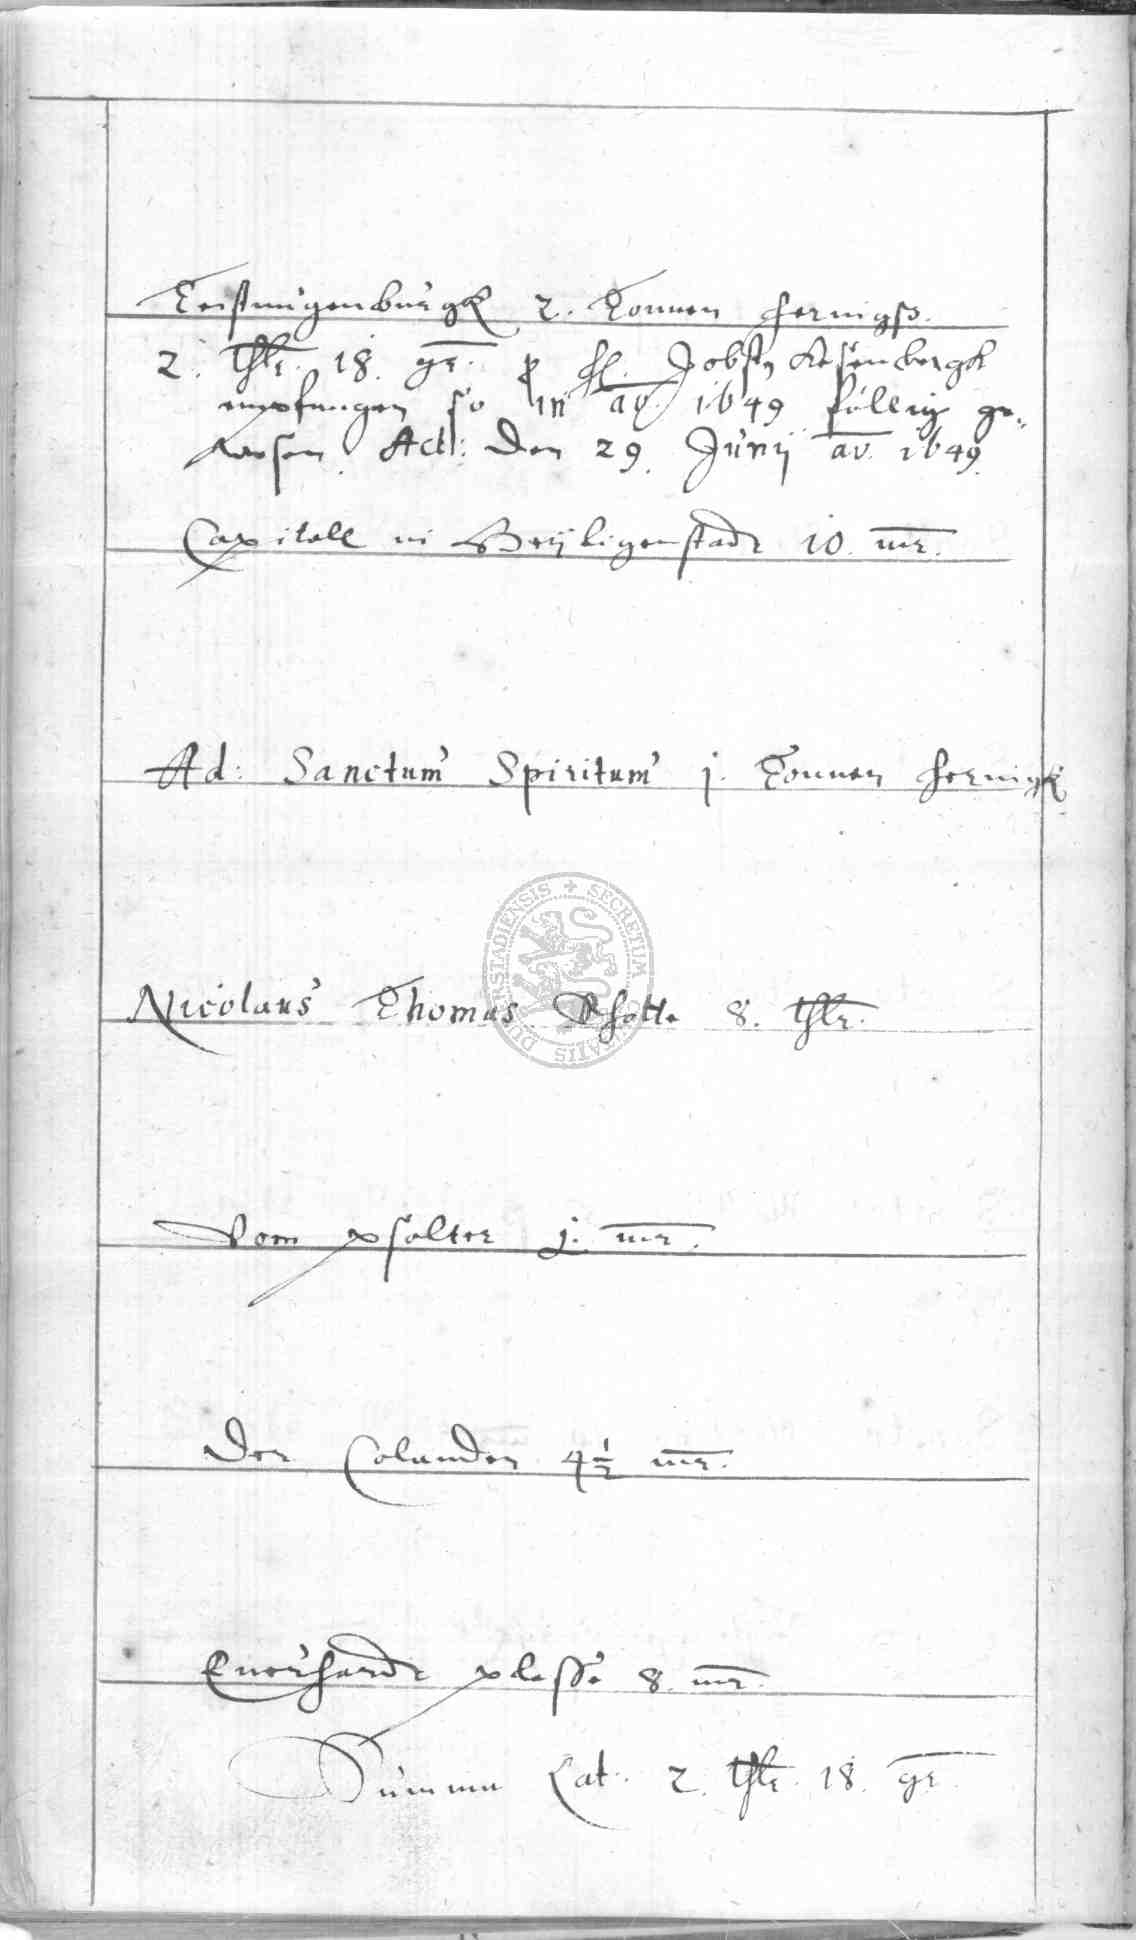 Teistungenburgk 2. Tonnen heringß.
2. thlr. 18. gr. p H. Jobst Rosenbergk
empfangen so in ao 1649 fällig ge„
wesen. Act: den 29. Junij ao. 1649
Capitell in Heyligenstadt 10. mr.
Ad: Sanctum Spiritum j. Tonnen heringk
Nicolaus Thomas Rhotte 8. thlr.
Vom psalter j. mr.
Der Calanden 4½ mr.
Everhardt plesse 8. mr.
Summa Lat. 2. thlr. 18. gr.
SECRETUM CIVITATIS DUDERSTADIENSIS